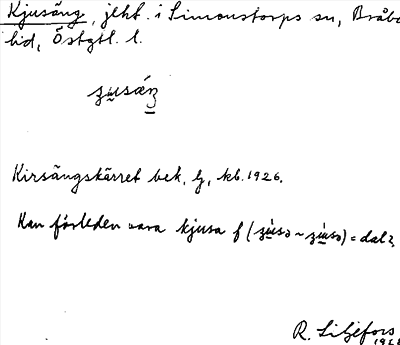 Kjusäng, jlht. i Simonstorps sn, Bråbo
hd, Östgtl. l.
Kirsängskärret bek. Lj, kb. 1926.
Kan förleden vara kjusa f ( ~ ) = dal?
R. Liljefors